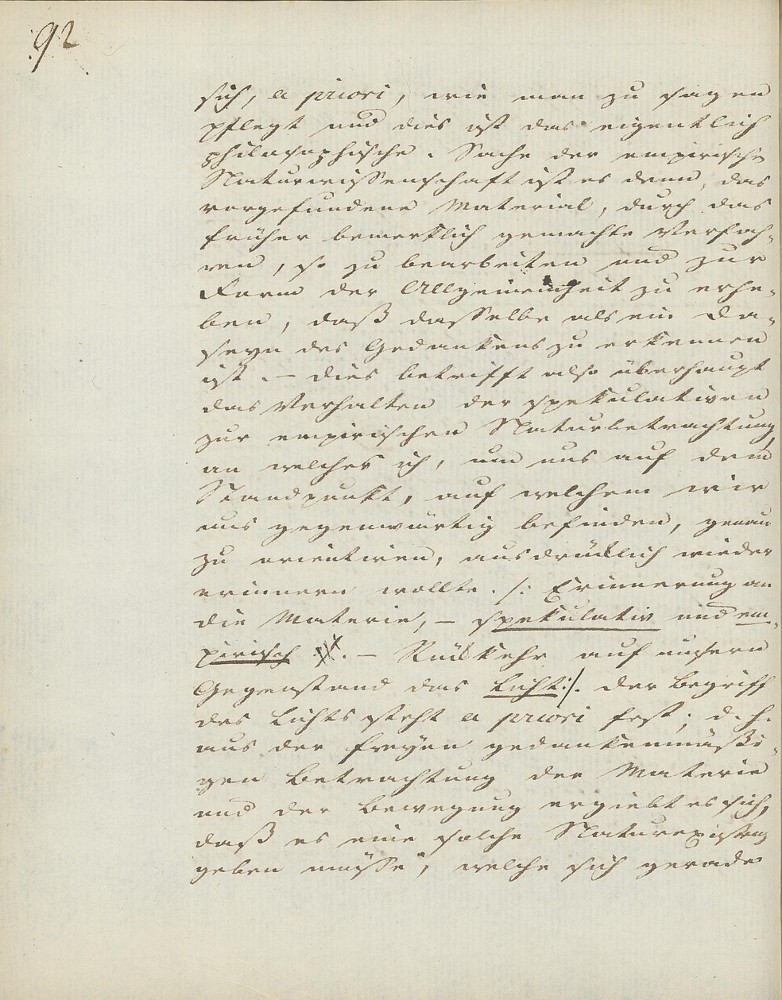 92
sich, a priori, wie man zu sagen
pflegt und dies ist das eigentlich
philosophische. Sache der empirische
Naturwissenschaft ist es denn, das
vorgefundene Material, durch das
früher bemerklich gemachte Verfah-
ren, so zu bearbeiten und zur
Form der Allgemeinheit zu erhe-
ben, daß dasselbe als ein Da-
seyn des Gedankens zu erkennen
ist. – dies betrifft also überhaupt
das Verhalten der spekulativen
zur empirischen Naturbetrachtung,
an welches ich, um uns auf dem
Standpunkt, auf welchem wir
uns gegenwärtig befinden, genau
zu orientiren, ausdrücklich wieder
erinnern wollte. /: Erinnerung an
die Materie, – spekulativ und em-
pirisch . – Rückkehr auf unsern
Gegenstand das Licht:/. der Begriff
des Lichts steht a priori fest; d. h.
aus der freyen gedankenmäßi-
gen Betrachtung der Materie
und der Bewegung ergiebt es sich,
daß es eine solche Naturexistenz
geben müsse, welche sich gerade